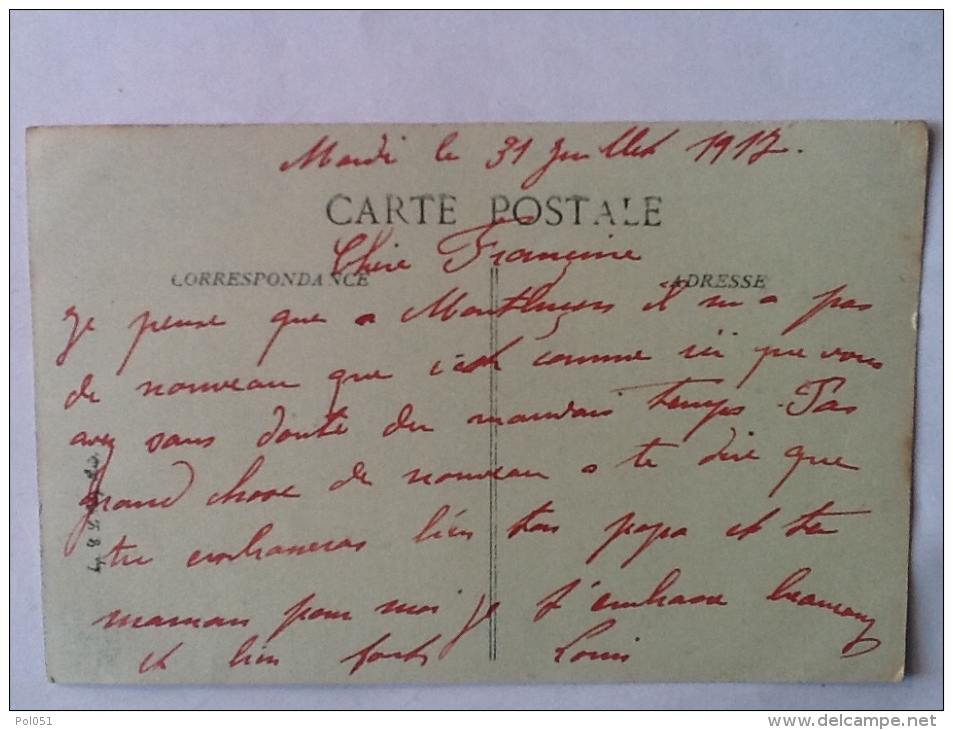 Mardi le 31 Juillet 1917.
CARTE POSTALE
Chère Françine
CORRESPONDANCE
ADRESSE
Je pense que a Montluçon il n'y a pas
de nouveau que c'est comme ici que vous
avez sans doute du mauvais temps. Pas
grand chose de nouveau a te dire que
tu embrasseras bien ton papa et ta
maman pour moi je t'embrasse beaucoup
et bien fort Louis
Pol051
www.delcampe.net